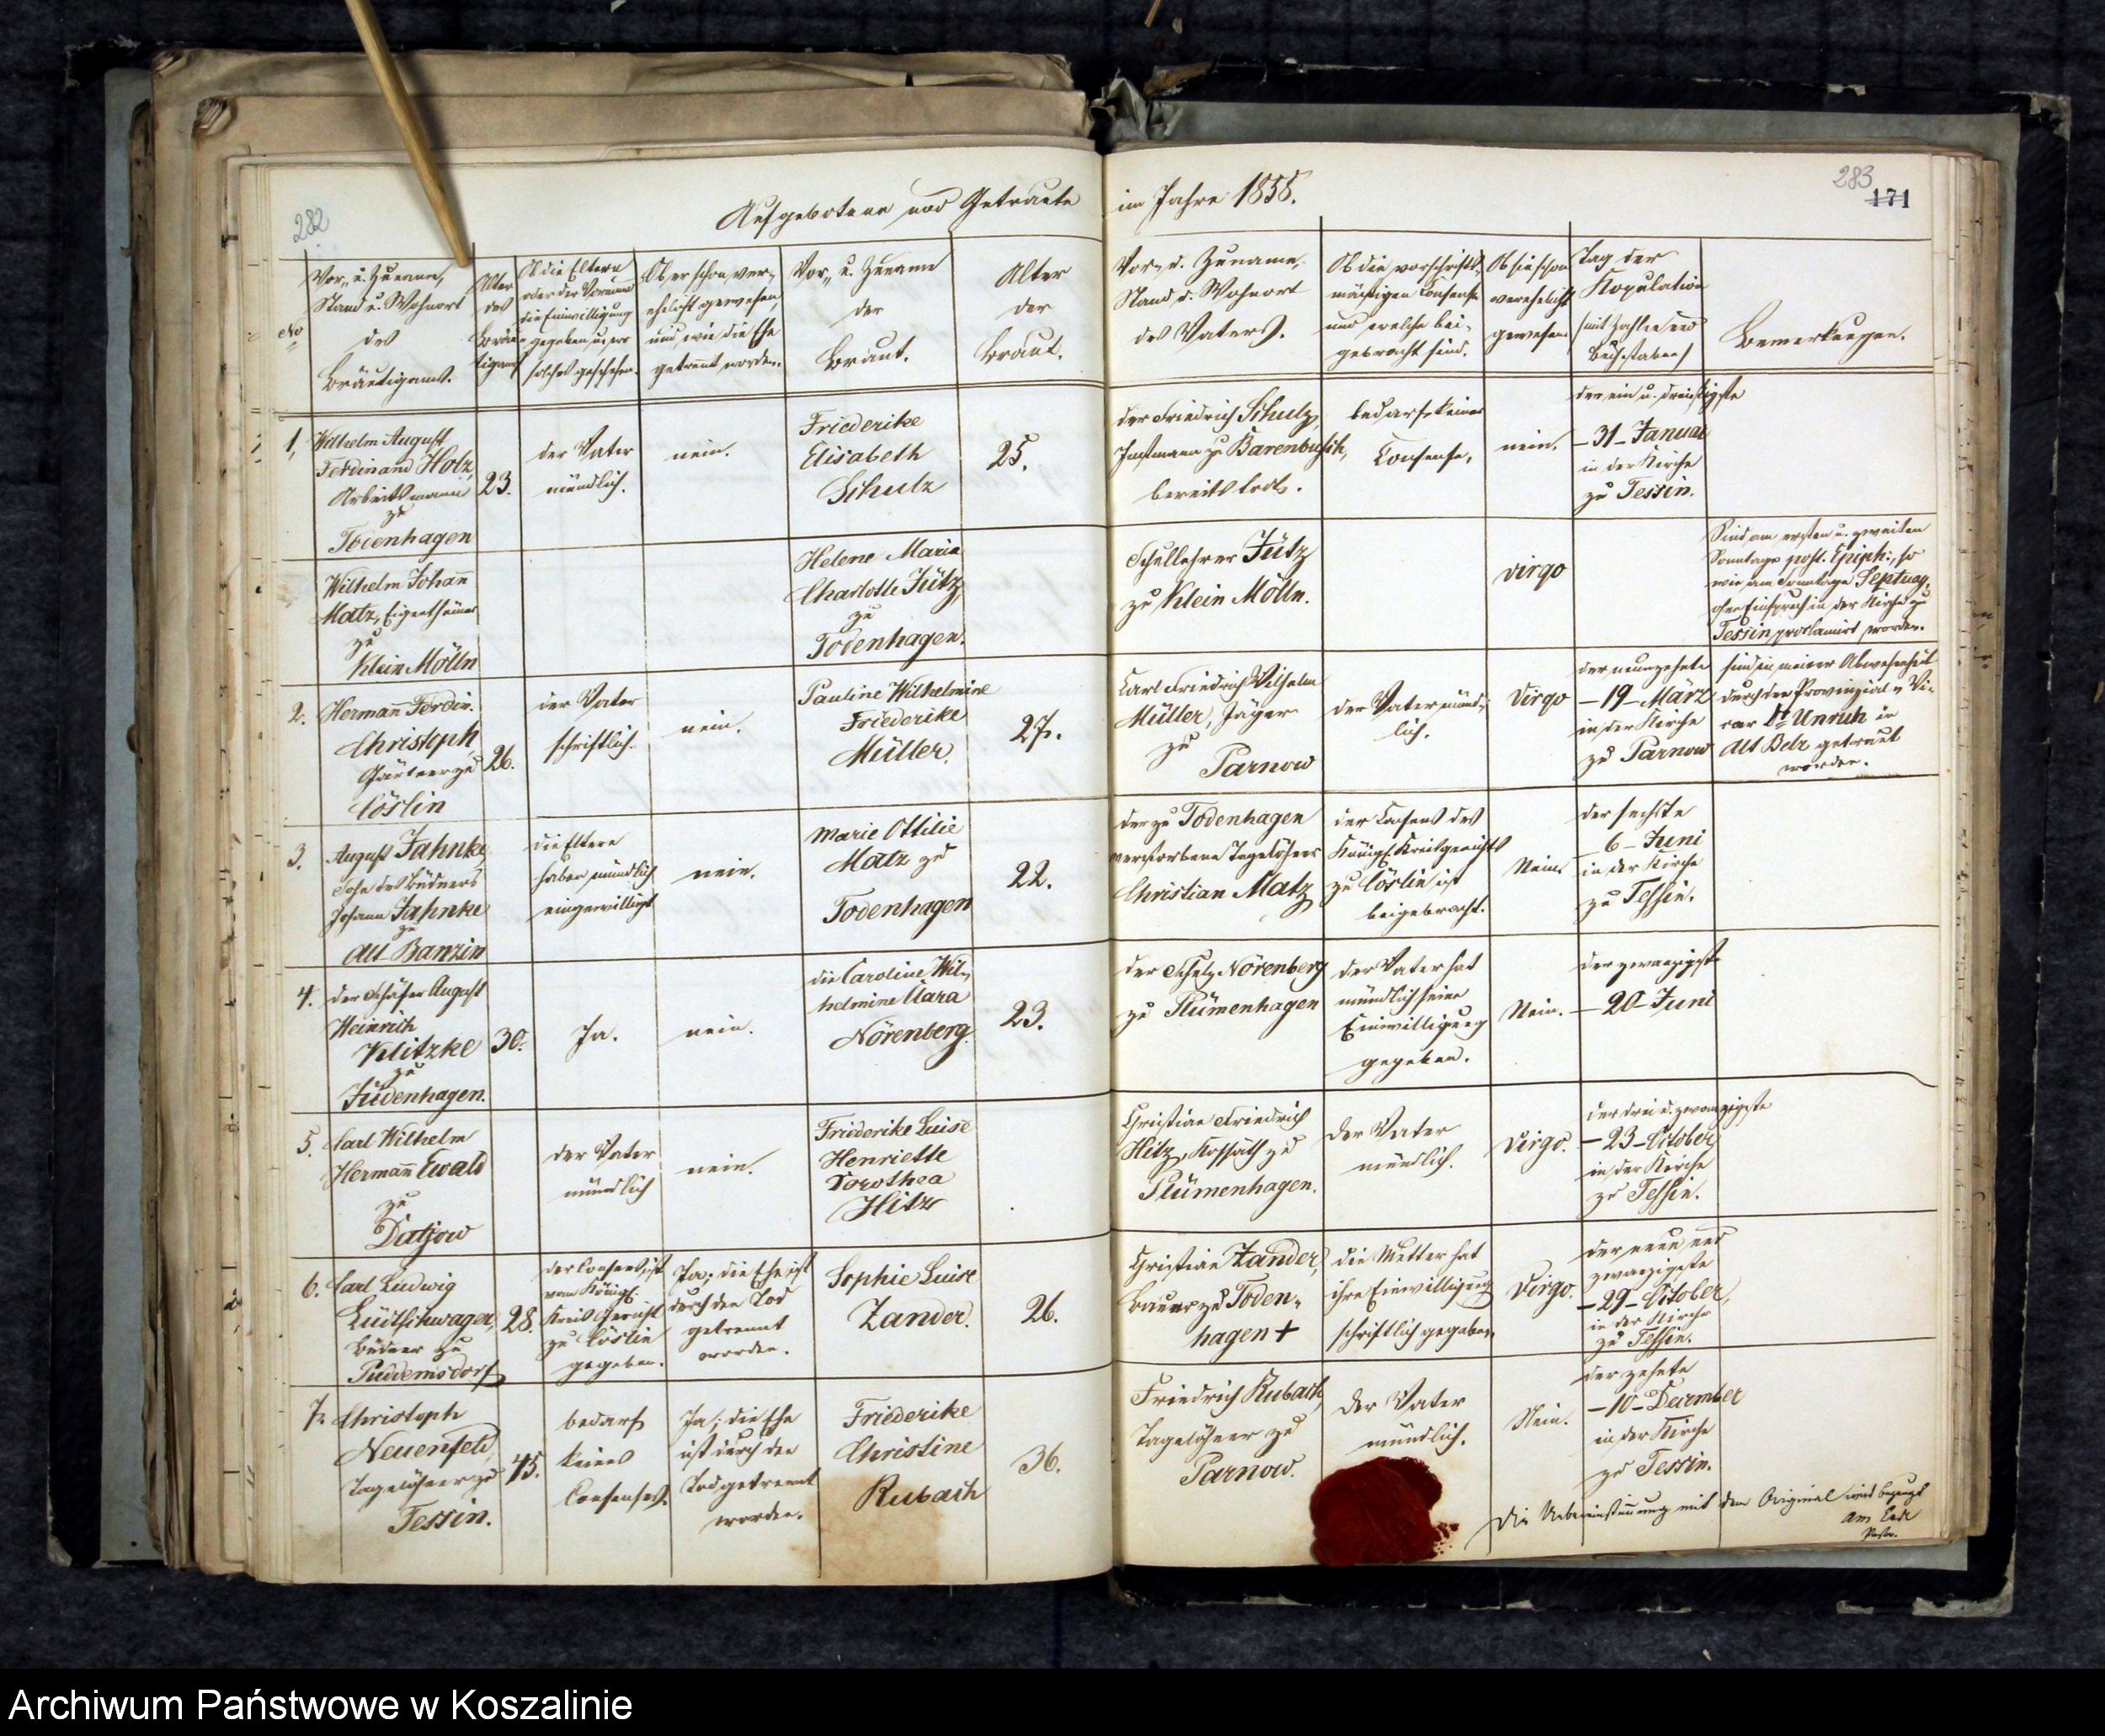 282
283
171
Aufgebotene und Getraute
im Jahre 1858.
No
Vor- u. Zuname,
Stand u. Wohnort
des
Bräutigams.
Alter
des
Bräu-
tigams
Ob die Eltern
oder der Vormund
die Einwilligung
gegeben, u. wie
solches geschehen.
Ob er schon ver-
ehelicht gewesen,
und wie die Ehe
getrennt worden.
Vor- u. Zuname
der
Braut.
Alter
der
Braut.
Vor- u. Zuname,
Stand u. Wohnort
des Vaters.
Ob die vorschrifts-
mäßigen Consense
und welche bei-
gebracht sind.
Ob sie schon
verehelicht
gewesen
Tag der
Kopulation
(mit Zahlen und
Buchstaben)
Bemerkungen.
1,
Wilhelm August
Ferdinand Holz,
Arbeitsmann
zu
Todenhagen
23.
der Vater
mündlich.
nein.
Friederike
Elisabeth
Schulz
25.
der Friedrich Schulz,
Instmann zu Barenbusch,
bereits todt.
bedarf keines
Consenses,
nein.
der ein u. dreißigste
– 31 – Januar
in der Kirche
zu Tessin.
Wilhelm Johann
Matz, Eigenthümer
zu
Klein Mölln
Helene Maria
Charlotte Jütz
zu
Todenhagen.
Schullehrer Jütz
zu Klein Mölln.
virgo
Sind am ersten u. zweiten
Sonntage post. Epiph:, so
wie am Sonntage Septuag.
ohne Einspruch in der Kirche zu
Tessin proclamirt worden.
2.
Hermann Ferdin.
Christoph,
Gärtner zu
Cöslin
26.
der Vater
schriftlich.
nein.
Pauline Wilhelmine
Friederike
Müller.
27.
Carl Friedrich Wilhelm
Müller, Jäger
zu
Parnow
der Vater münd-
lich.
Virgo
der neunzehnte
– 19 – März
in der Kirche
zu Parnow
sind in meiner Abwesenheit
durch den Provinzial-Vi-
car Dr Unruh in
Alt Belz getraut
worden.
3.
August Jahnke,
Sohn des Büdners
Johann Jahnke
zu
Alt Banzin
die Eltern
haben mündlich
eingewilligt
nein.
Marie Ottilie
Matz zu
Todenhagen
22.
der zu Todenhagen
verstorbene Tagelöhner
Christian Matz
der Consens des
Königl. Kreisgerichts
zu Cöslin ist
beigebracht.
Nein.
der sechste
– 6 – Juni
in der Kirche
zu Tessin.
4.
der Schäfer August
Heinrich
Klitzke
zu
Jüdenhagen.
30.
Ja.
nein.
die Caroline Wil-
helmine Clara
Nörenberg.
23.
der Schulz Nörenberg
zu Plümenhagen
der Vater hat
mündlich seine
Einwilligung
gegeben.
Nein.
der zwanzigste
– 20 – Juni
5.
Carl Wilhelm
Hermann Ewald
zu
Datjow
der Vater
mündlich
nein.
Friederike Luise
Henriette
Dorothea
Hitz
Christian Friedrich
Hitz, Kossäth zu
Plümenhagen.
Der Vater
mündlich.
Virgo.
der drei u. zwanzigste
– 23 – October
in der Kirche
zu Tessin.
6.
Carl Ludwig
Lüdtschwager,
Büdner zu
Puddemsdorf
28.
der Consens ist
vom Königl.
Kreis Gericht
zu Cöslin
gegeben.
Ja; die Ehe ist
durch den Tod
getrennt
worden.
Sophie Luise
Zander.
26.
Christian Zander,
Bauer zu Toden-
hagen +
die Mutter hat
ihre Einwilligung
schriftlich gegeben.
Virgo.
der neun und
zwanzigste
– 29 – October,
in der Kirche
zu Tessin.
7.
Christoph
Neuenfeld,
Tagelöhner zu
Tessin.
45.
bedarf
keines
Consenses.
Ja; die Ehe
ist durch den
Tod getrennt
worden.
Friederike
Christine
Rubach
36.
Friedrich Rubach,
Tagelöhner zu
Parnow.
Der Vater
mündlich.
Nein.
der zehnte
– 10 – December
in der Kirche
zu Tessin.
Die Uebereinstimmung mit dem Original wird bezeugt
Am Ende
Pastor.
Archiwum Państwowe w Koszalinie